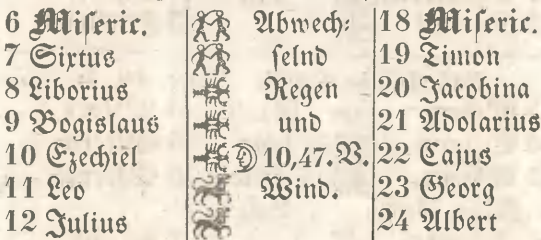 6 Miſeric. Abwech⸗ 18 Miſeric.
7 Sixtus ſelnd 19 Timon
8 Liborius Regen 20 Jacobina
9 Bogislaus und 21 Adolarius
10 Ezechiel 10,47. V. 22 Cajus
11 Leo Wind. 23 Georg
12 Julius 24 Albert